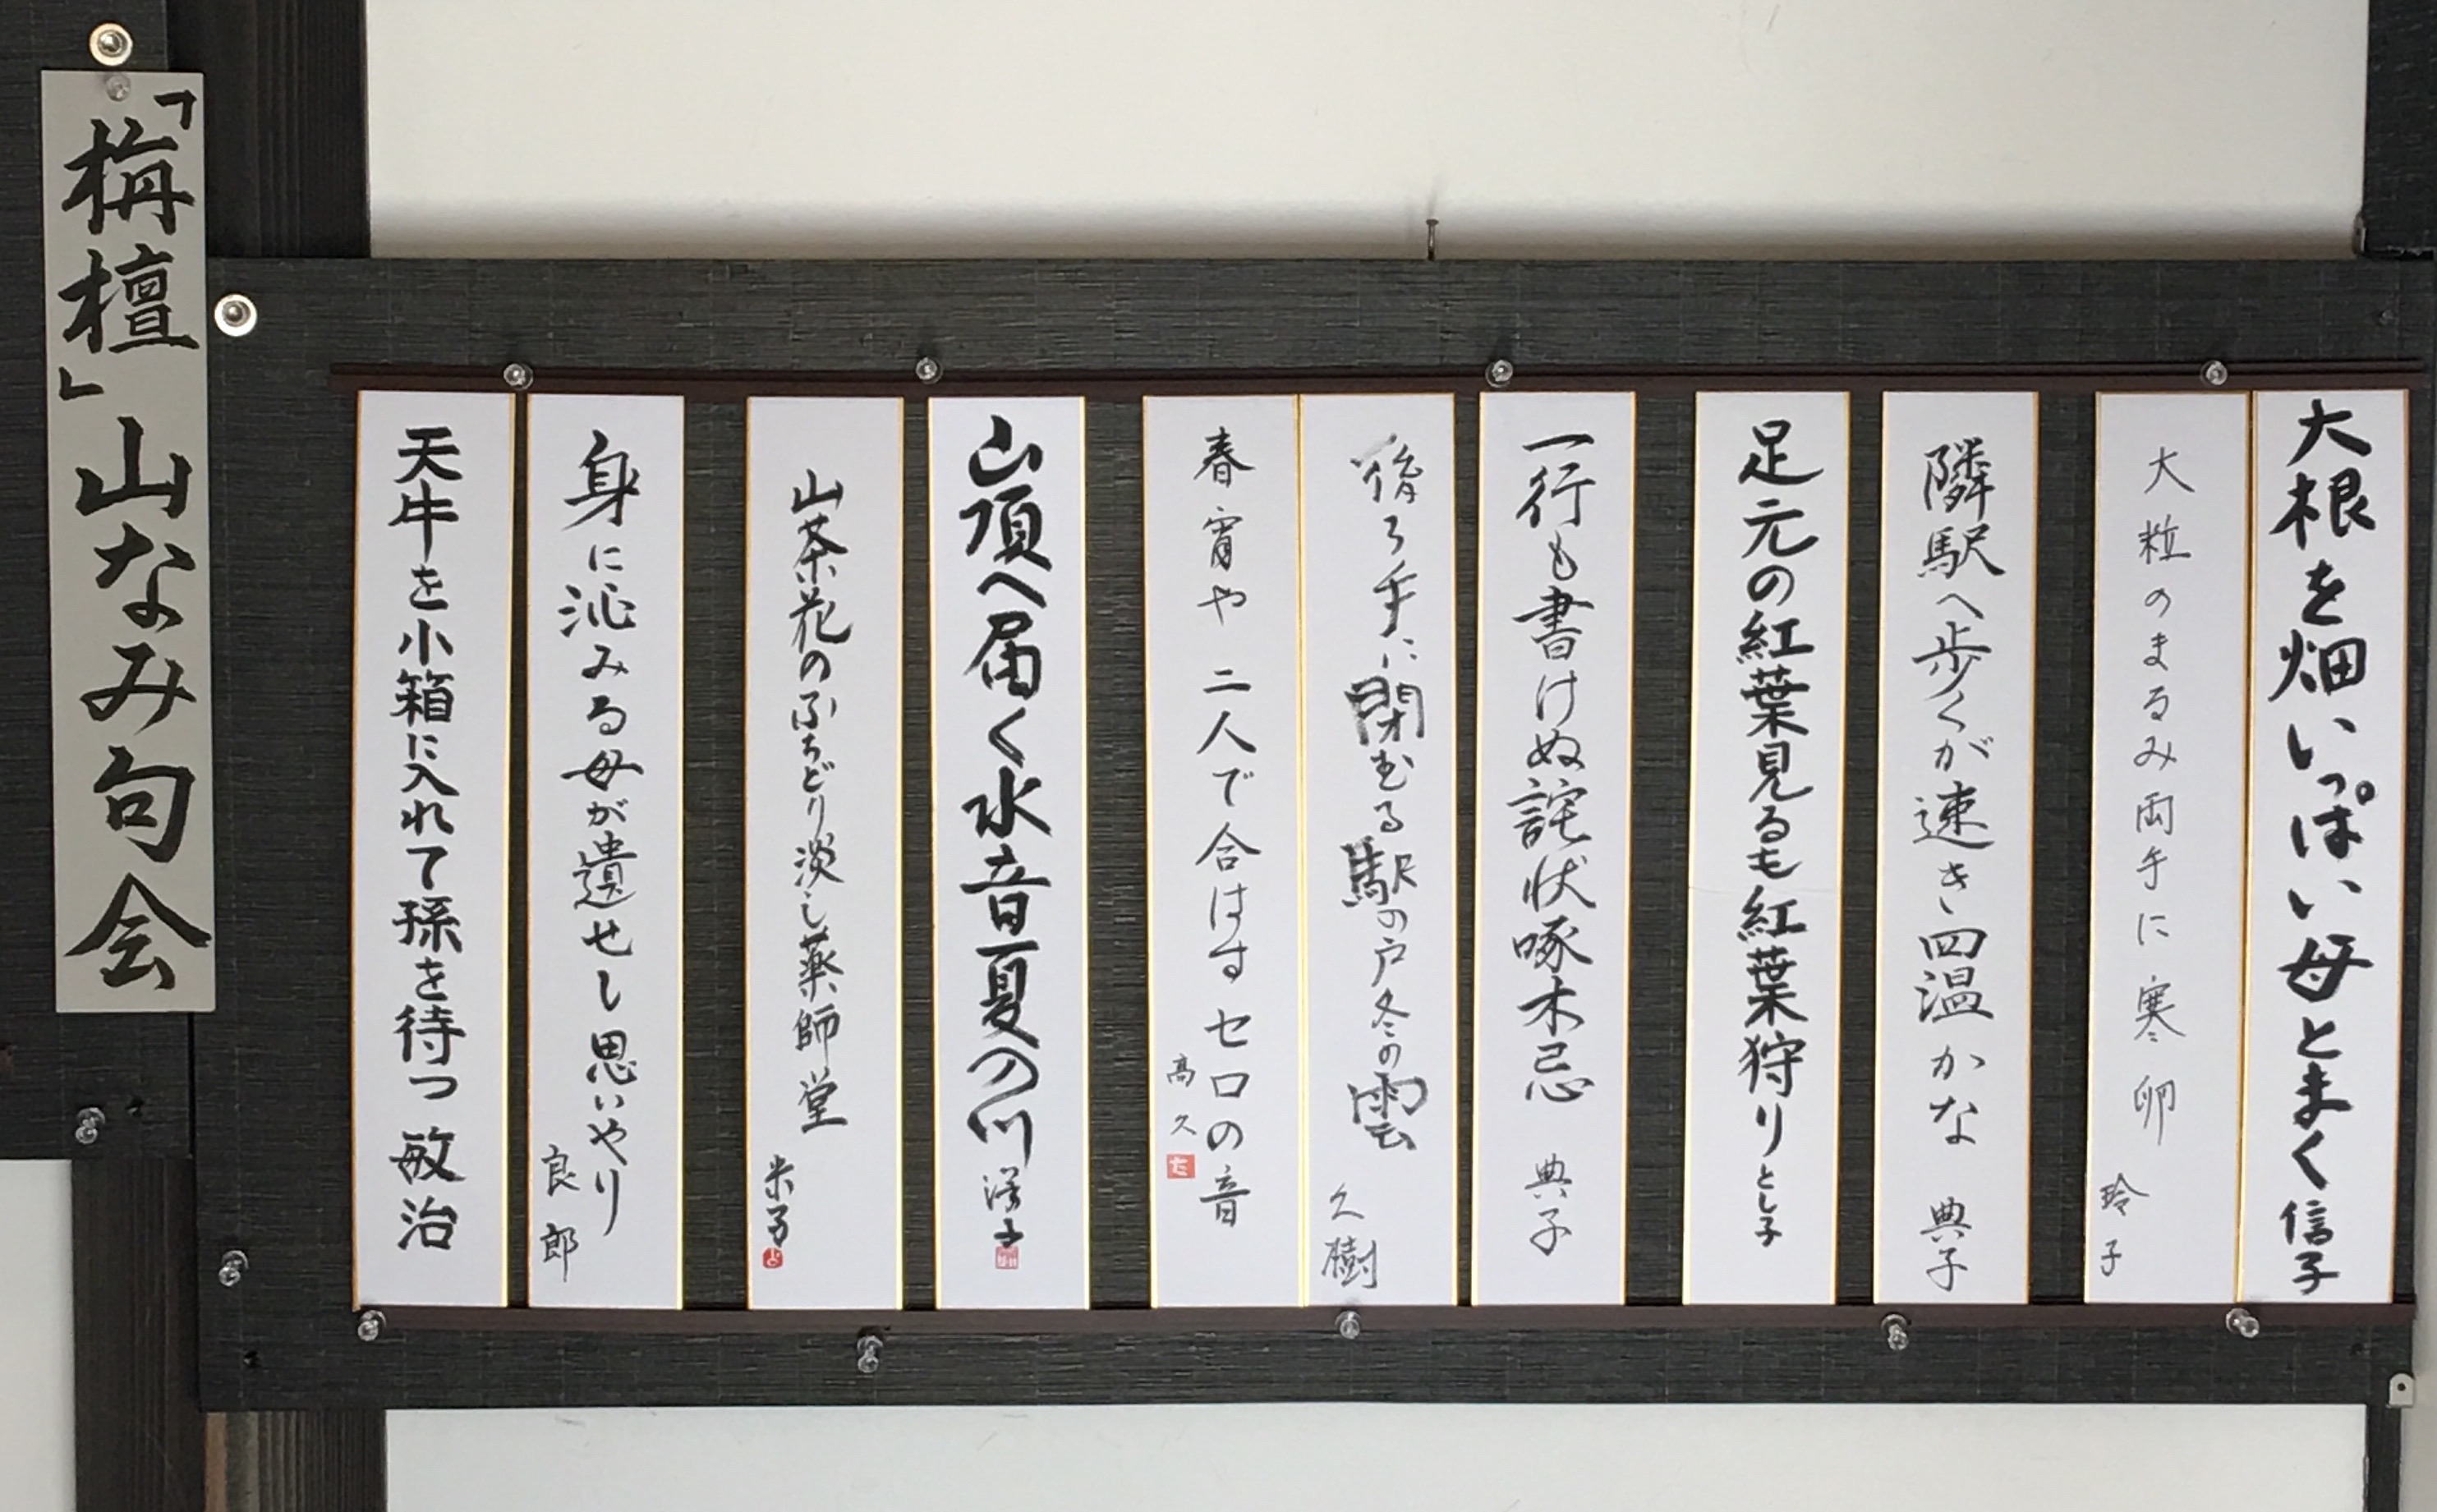 大根を畑いっぱい母とまく 信子
大粒のまるみ両手に寒卵 玲子
隣駅へ歩くが速き四温かな 典子
足元の紅葉見るも紅葉狩り とし子
一行も書けぬ詫状啄木忌 典子
後ろ手に閉むる駅の戸冬の雲 久樹
春宵や 二人で合はす セロの音 高久
山頂へ届く水音夏の川 洋子
山茶花のふちどり淡し薬師堂 米子
身に沁みる母が遺せし思いやり 良郎
天牛を小箱に入れて孫を待つ 敏治
「栴檀」山なみ句会